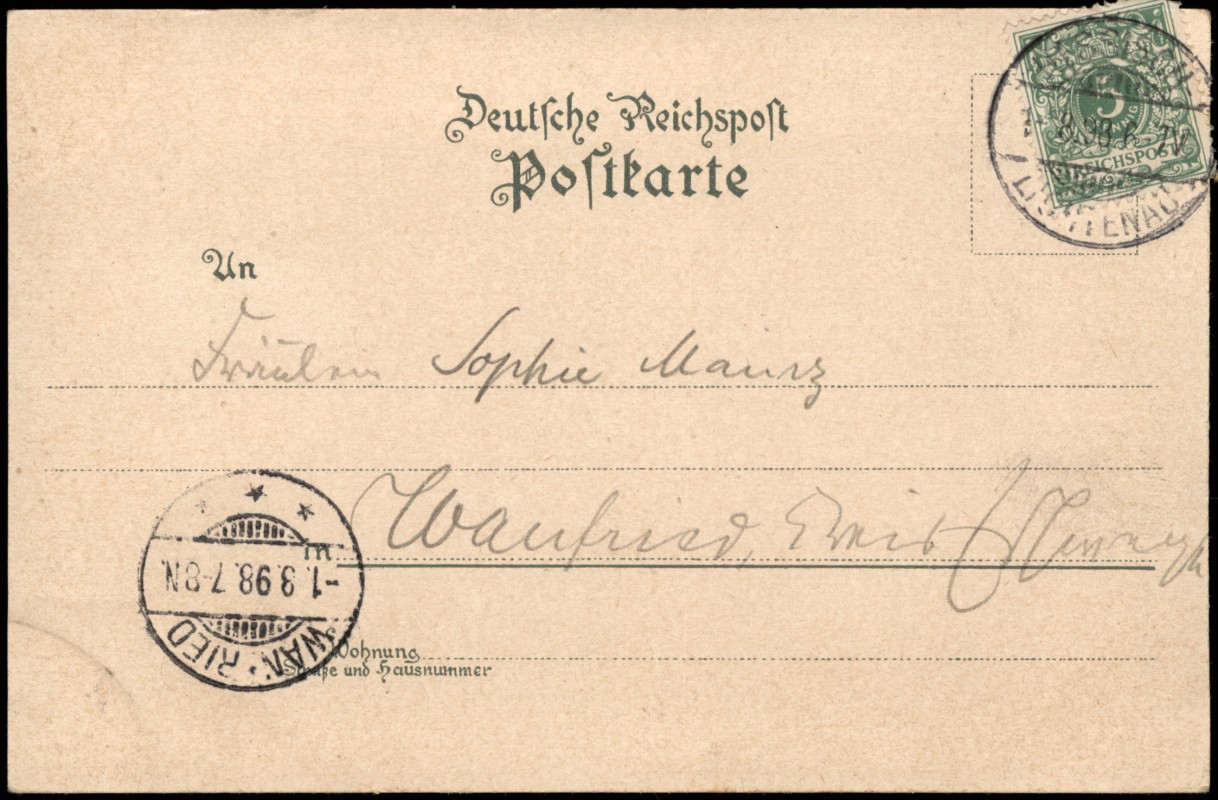 Deutsche Reichspost
Postkarte
5
REICHSPOST
LICHTENAU
An
Fräulein Sophie
in Wanfried, Kreis Eschwege
-1.3.98.7-8N.
WAN RIED
Wohnung
Straße und Hausnummer